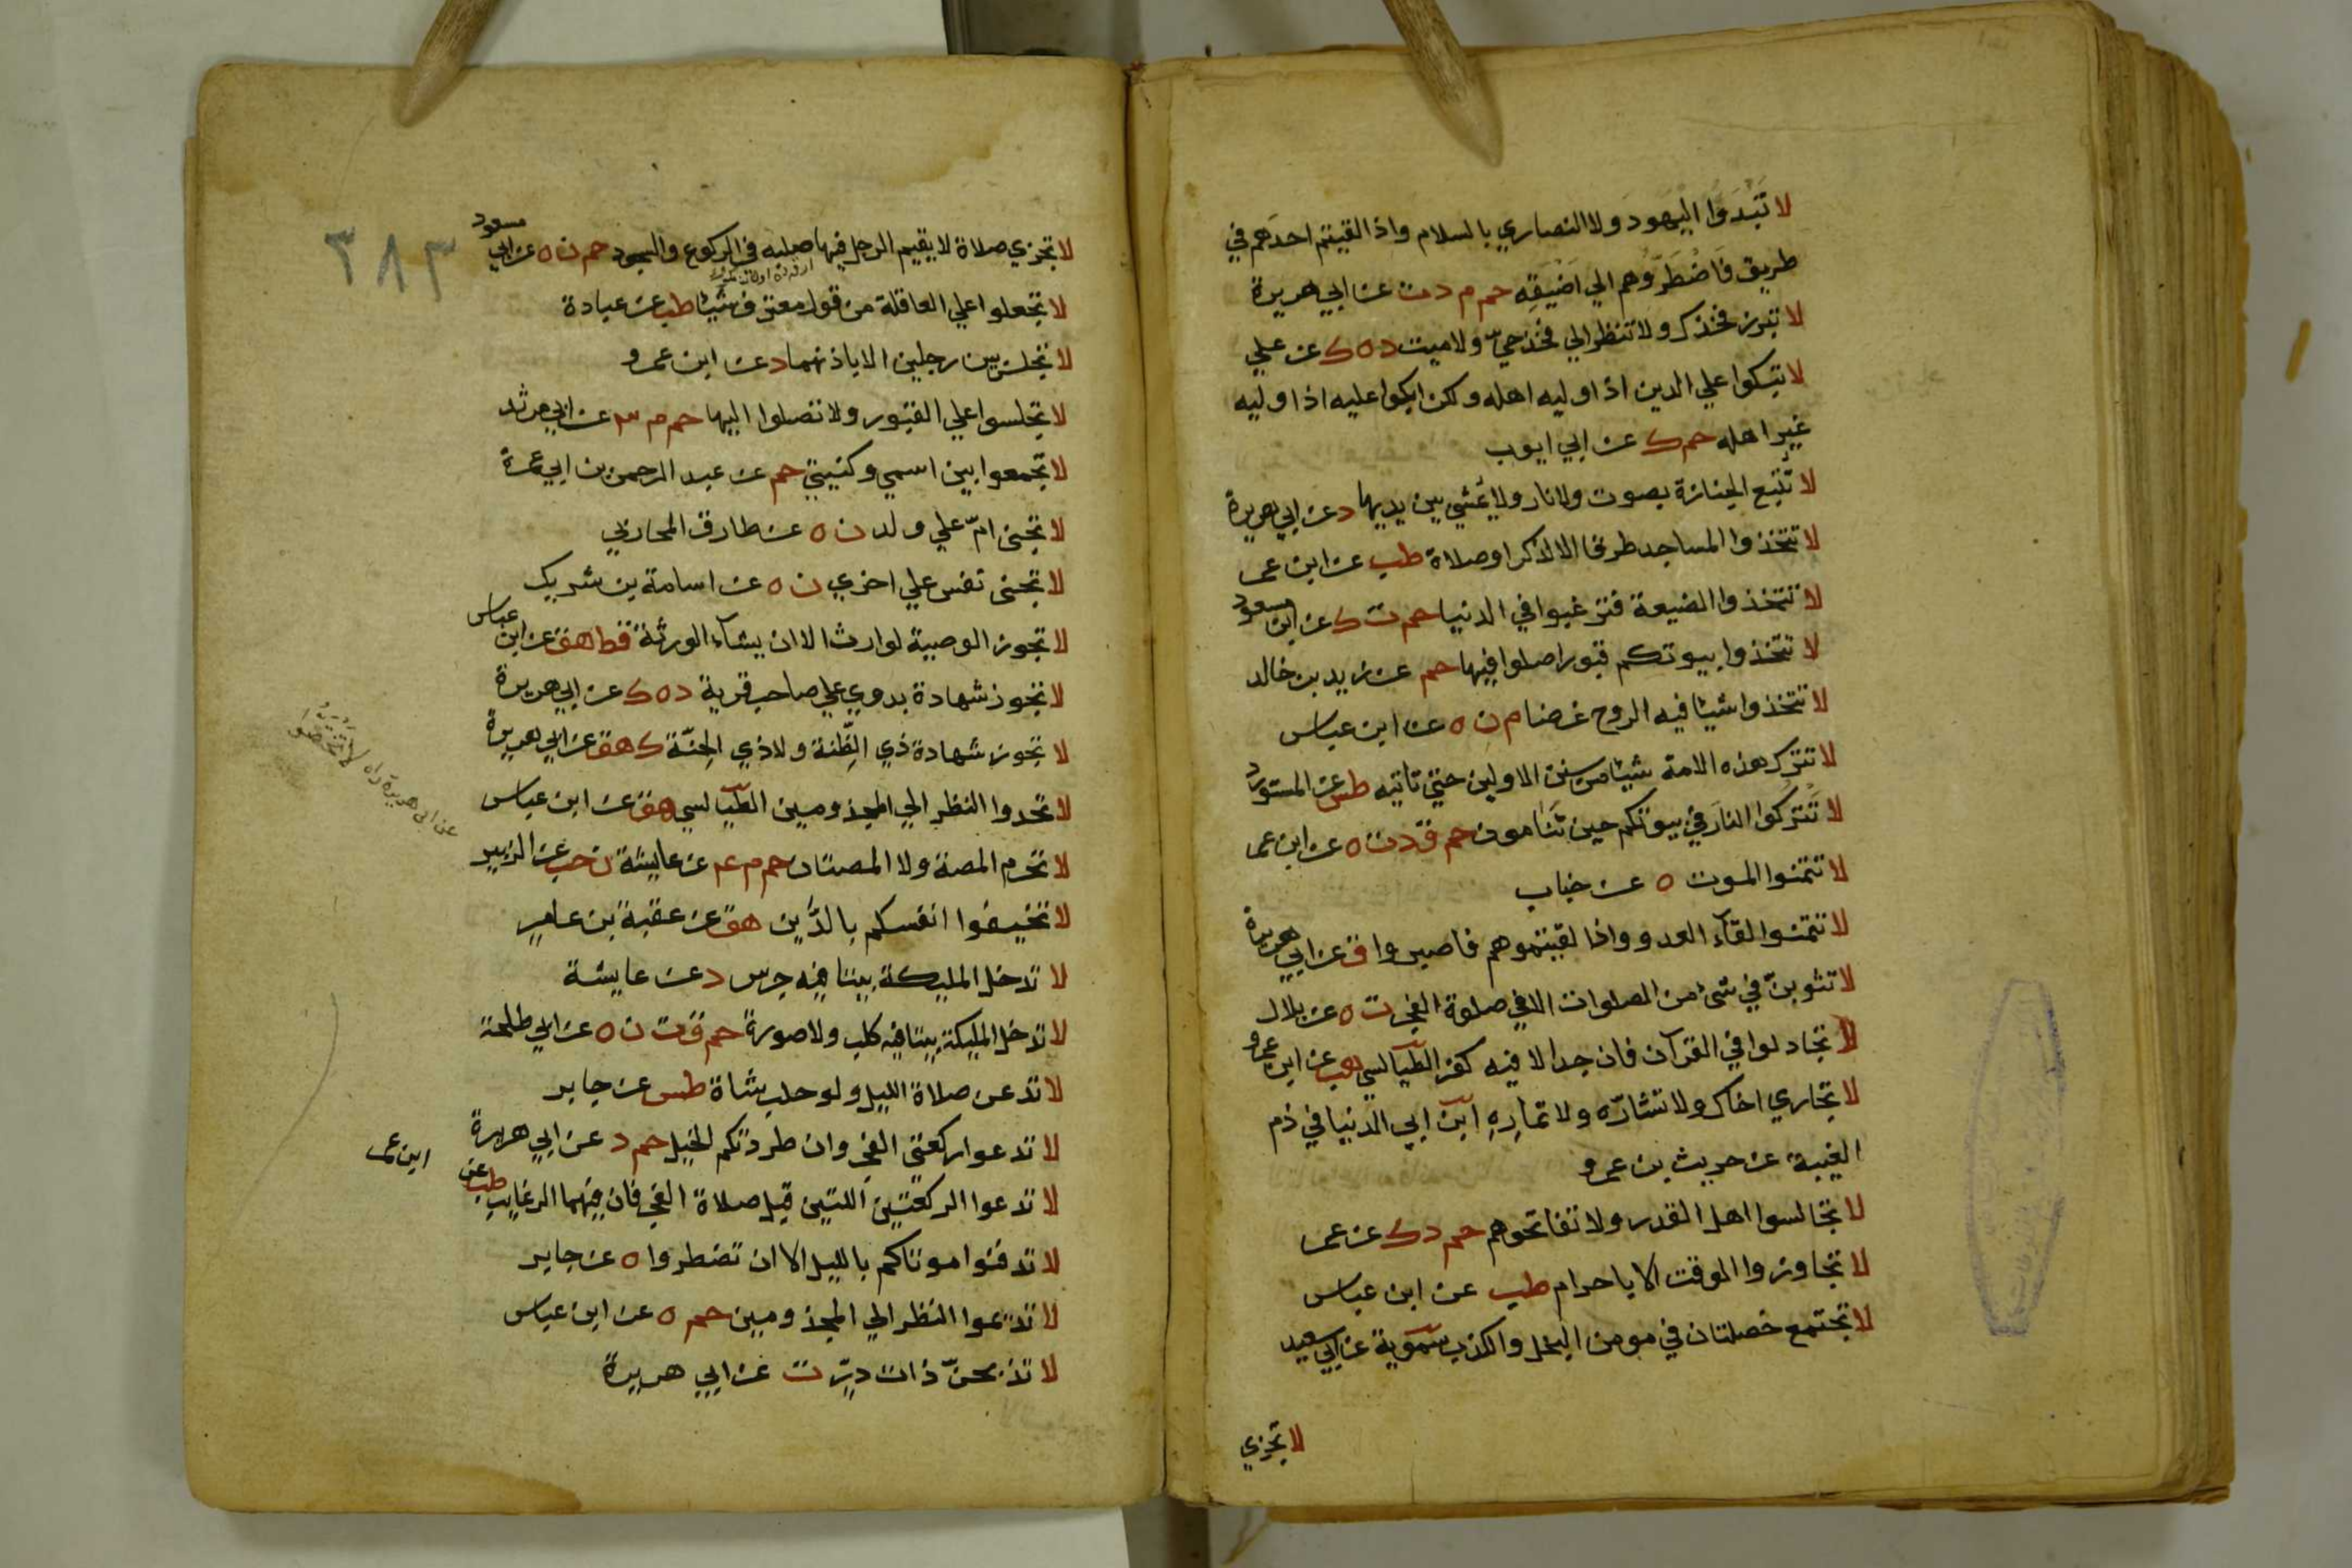 لا تَبْدَؤا اليهودَ ولا النصاري بالسلام واذا لقيتم احدَهم في
طريق فاضْطَرُّوهم الي اَضْيَقِه حم م د ت عن ابي هريرة
لا تبرز فخذك ولا تنظر الي فخذ حيّ ولا ميت د ه ك عن علي
لا تبكوا علي الدين اذا وليه اهله ولكن ابكوا عليه اذا وليه
غيرُ اهله حم ك عن ابي ايوب
لا تُتبع الجنازة بصوت ولا نار ولا يُمشي بين يديها د عن ابي هريرة
لا تتخذوا المساجد طرقا الا لذكر او صلاة طب عن ابن عمر
لا تتخذوا الضيعة فترغبوا في الدنيا حم ت ك عن ابن مسعود
لا تتخذوا بيوتكم قبورا صلوا فيها حم عن زيد بن خالد
لا تتخذوا شيئا فيه الروح غرضا م ن ه عن ابن عباس
لا تترك هذه الامة شيئا من سنن الاولين حتي تاتيه طس عن المستورد
لا تَتركوا النارَ في بيوتكم حين تَنامون حم ق د ت ه عن ابن عمر
لا تتمنوا الموت ه عن خباب
لا تتمنوا لقآء العدو واذا لقيتموهم فاصبروا ق عن ابي هريرة
لا تثوبنّ في شئ من الصلوات الا في صلوة الفجر ت ه عن بلال
لا تجادلوا في القرآن فان جدالا فيه كفر الطيالسي هب عن ابن عمرو
لا تجاري اخاك ولا تشارّه ولا تمارِهِ ابن ابي الدنيا في ذم
الغيبة عن حريث بن عمرو
لا تجالسوا اهل القدر ولا تفاتحوهم حم د ك عن عمر
لا تجاوزوا الموقت الا باحرام طب عن ابن عباس
لا تجتمع خصلتان في مومن البخل والكذب سمّوية عن ابي سعيد
لا تجزي
٣٨٣
لا تجزي صلاة لا يقيم الرجل فيها صلبه في الركوع والسجود حم ن ه عن ابي مسعود
لا تجعلوا علي العاقلة من قول معترف شيئا طب عن عبادة
لا تجلس بين رجلين الا باذنهما د عن ابن عمرو
لا تجلسوا علي القبور ولا تصلوا اليها حم م ٣ عن ابي مرثد
لا تجمعوا بين اسمي وكنيتي حم عن عبد الرحمن بن ابي عمرة
لا تجنى امّ علي ولد ن ه عن طارق المحاربي
لا تجنى نفس علي اخري ن ه عن اسامة بن شريك
لا تجوز الوصية لوارث الا ان يشآء الورثة قط هق عن ابن عباس
لا تجوز شهادة بدوي علي صاحب قرية د ه ك عن ابي هريرة
لا تجوز شهادة ذي الظِّنة ولا ذي الحِنّة ك هق عن ابي هريرة
لا تحدوا النظر الي المجذومين الطيالسي هق عن ابن عباس
لا تحرم المصة ولا المصتان حم م عم عن عايشة ن حب عن الزبير
لا تخيفوا انفسكم بالدَّين هق عن عقبة بن عامر
لا تدخل المليكة بيتا فيه جرس د عن عايشة
لا تدخل المليكة بيتا فيه كلب ولا صورة حم ق ت ن ه عن ابي طلحة
لا تدعن صلاة الليل ولو حلب شاة طس عن جابر
لا تدعوا ركعتى الفجر وان طردتكم الخيل حم د عن ابي هريرة
لا تدعوا الركعتين اللتين قبل صلاة الفجر فان فيهما الرغايب طب عن
ابن عمر
لا تدفنوا موتاكم بالليل الا ان تضطروا ه عن جابر
لا تديموا النظر الي المجذومين حم ه عن ابن عباس
لا تذبحنّ ذات درّ ت عن ابي هريرة
عن ابى هريرة